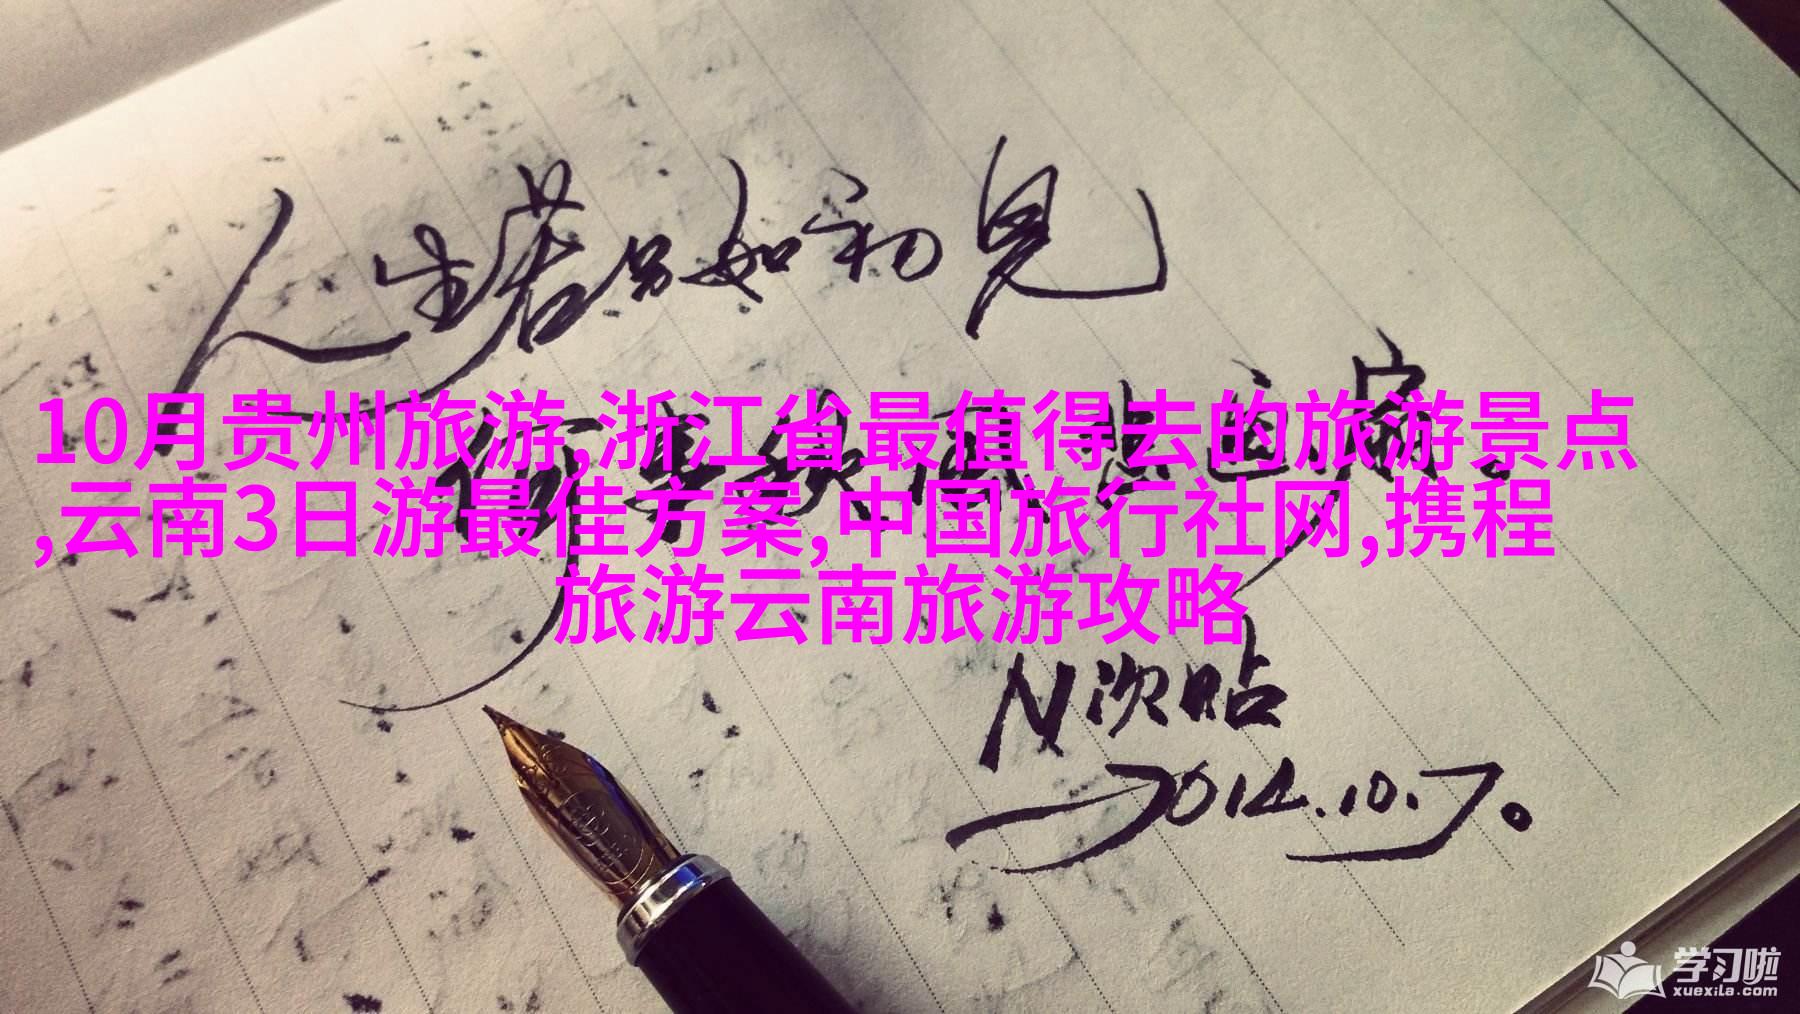 人生若只如初见
10月贵州旅游,浙江省最值得去的旅游景点
,云南3日游最佳方案,中国旅行社网,携程
旅游云南旅游攻略
N次贴
2014.10.7。
学习啦
xuexila.com